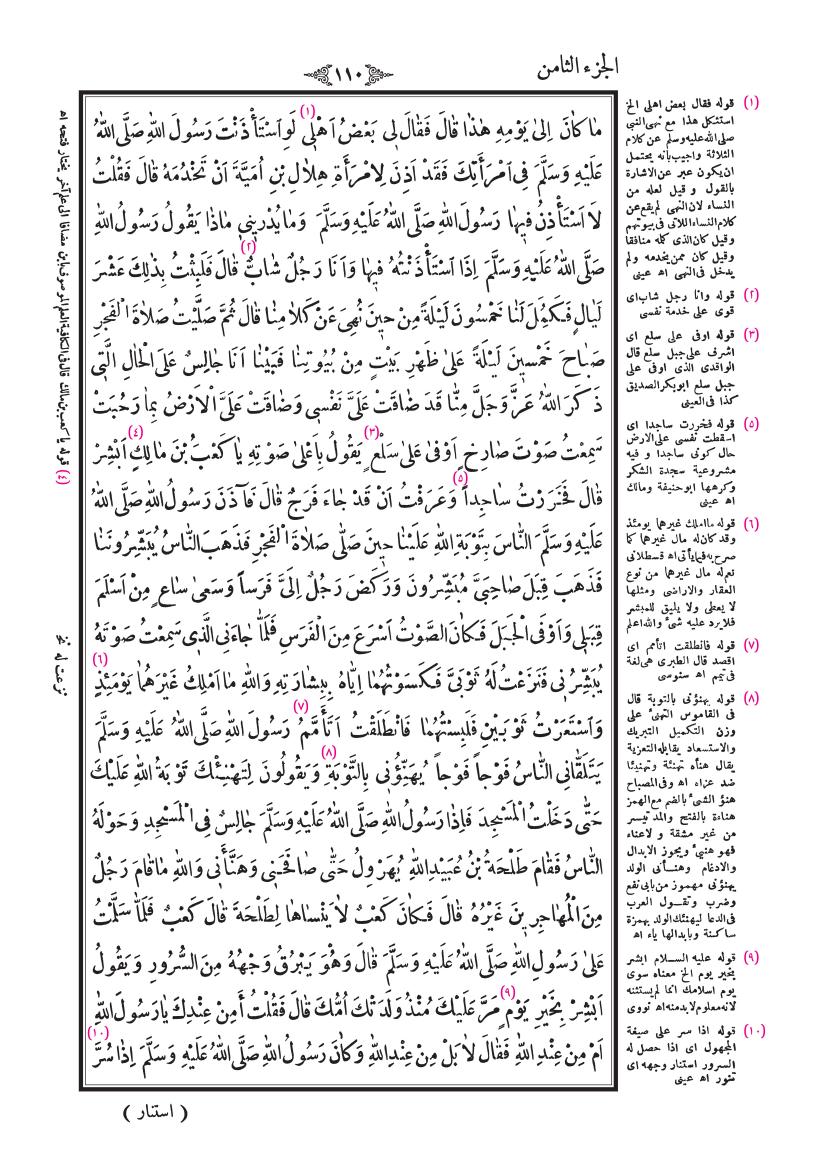 الجزء الثامن
١١٠
مَا كَانَ اِلىٰ يَوْمِهِ هٰذَا قَالَ فَقَالَ لِى بَعْضُ اَهْلِى (١) لَوِ اسْتَأْذَنْتَ رَسُولَ اللهِ صَلَّى اللهُ
عَلَيْهِ وَسَلَّمَ فِى امْرَأَتِكَ فَقَدْ اَذِنَ لِامْرَأَةِ هِلَالِ بْنِ اُمَيَّةَ اَنْ تَخْدُمَهُ قَالَ فَقُلْتُ
لَا اَسْتَأْذِنُ فِيهَا رَسُولَ اللهِ صَلَّى اللهُ عَلَيْهِ وَسَلَّمَ وَمَا يُدْرِينِى مَاذَا يَقُولُ رَسُولُ اللهِ
صَلَّى اللهُ عَلَيْهِ وَسَلَّمَ اِذَا اسْتَأْذَنْتُهُ فِيهَا وَاَنَا رَجُلٌ شَابٌّ (٢) قَالَ فَلَبِثْتُ بِذٰلِكَ عَشْرَ
لَيَالٍ فَكَمُلَ لَنَا خَمْسُونَ لَيْلَةً مِنْ حِينَ نُهِىَ عَنْ كَلَامِنَا قَالَ ثُمَّ صَلَّيْتُ صَلَاةَ الْفَجْرِ
صَبَاحَ خَمْسِينَ لَيْلَةً عَلىٰ ظَهْرِ بَيْتٍ مِنْ بُيُوتِنَا فَبَيْنَا اَنَا جَالِسٌ عَلَى الْحَالِ الَّتِى
ذَكَرَ اللهُ عَزَّ وَجَلَّ مِنَّا قَدْ ضَاقَتْ عَلَىَّ نَفْسِى وَضَاقَتْ عَلَىَّ الْاَرْضُ بِمَا رَحُبَتْ
سَمِعْتُ صَوْتَ صَارِخٍ اَوْفىٰ عَلىٰ سَلْعٍ (٣) يَقُولُ بِاَعْلىٰ صَوْتِهِ يَا كَعْبُ بْنَ مَالِكٍ (٤) اَبْشِرْ
قَالَ فَخَرَرْتُ سَاجِداً (٥) وَعَرَفْتُ اَنْ قَدْ جَاءَ فَرَجٌ قَالَ فَآذَنَ رَسُولُ اللهِ صَلَّى اللهُ
عَلَيْهِ وَسَلَّمَ النَّاسَ بِتَوْبَةِ اللهِ عَلَيْنَا حِينَ صَلَّى صَلَاةَ الْفَجْرِ فَذَهَبَ النَّاسُ يُبَشِّرُونَنَا
فَذَهَبَ قِبَلَ صَاحِبَىَّ مُبَشِّرُونَ وَرَكَضَ رَجُلٌ اِلَىَّ فَرَساً وَسَعىٰ سَاعٍ مِنْ اَسْلَمَ
قِبَلِى وَاَوْفَى الْجَبَلَ فَكَانَ الصَّوْتُ اَسْرَعَ مِنَ الْفَرَسِ فَلَمَّا جَاءَنِى الَّذِى سَمِعْتُ صَوْتَهُ
يُبَشِّرُنِى فَنَزَعْتُ لَهُ ثَوْبَىَّ فَكَسَوْتُهُمَا اِيَّاهُ بِبِشَارَتِهِ وَاللهِ مَا اَمْلِكُ غَيْرَهُمَا يَوْمَئِذٍ (٦)
وَاسْتَعَرْتُ ثَوْبَيْنِ فَلَبِسْتُهُمَا فَانْطَلَقْتُ اَتَأَمَّمُ (٧) رَسُولَ اللهِ صَلَّى اللهُ عَلَيْهِ وَسَلَّمَ
يَتَلَقَّانِى النَّاسُ فَوْجاً فَوْجاً يُهَنِّؤُنِى بِالتَّوْبَةِ (٨) وَيَقُولُونَ لِتَهْنِئْكَ تَوْبَةُ اللهِ عَلَيْكَ
حَتّٰى دَخَلْتُ الْمَسْجِدَ فَاِذَا رَسُولُ اللهِ صَلَّى اللهُ عَلَيْهِ وَسَلَّمَ جَالِسٌ فِى الْمَسْجِدِ وَحَوْلَهُ
النَّاسُ فَقَامَ طَلْحَةُ بْنُ عُبَيْدِ اللهِ يُهَرْوِلُ حَتّٰى صَافَحَنِى وَهَنَّأَنِى وَاللهِ مَا قَامَ رَجُلٌ
مِنَ الْمُهَاجِرِينَ غَيْرُهُ قَالَ فَكَانَ كَعْبٌ لَا يَنْسَاهَا لِطَلْحَةَ قَالَ كَعْبٌ فَلَمَّا سَلَّمْتُ
عَلىٰ رَسُولِ اللهِ صَلَّى اللهُ عَلَيْهِ وَسَلَّمَ قَالَ وَهُوَ يَبْرُقُ وَجْهُهُ مِنَ السُّرُورِ وَيَقُولُ
اَبْشِرْ بِخَيْرِ يَوْمٍ مَرَّ عَلَيْكَ (٩) مُنْذُ وَلَدَتْكَ اُمُّكَ قَالَ فَقُلْتُ أَمِنْ عِنْدِكَ يَا رَسُولَ اللهِ
اَمْ مِنْ عِنْدِ اللهِ فَقَالَ لَا بَلْ مِنْ عِنْدِ اللهِ وَكَانَ رَسُولُ اللهِ صَلَّى اللهُ عَلَيْهِ وَسَلَّمَ اِذَا سُرَّ (١٠)
( استنار )
(١) قوله فقال بعض اهلى الخ
استشكل هذا مع نهى النبى
صلى الله عليه وسلم عن كلام
الثلاثة واجيب بأنه يحتمل
ان يكون عبر عن الاشارة
بالقول و قيل لعله من
النساء لان النهى لم يقع عن
كلام النساء اللاتى فى بيوتهم
وقيل كان الذى كلمه منافقا
وقيل كان ممن يخدمه ولم
يدخل فى النهى اه عينى
(٢) قوله وانا رجل شاب اى
قوى على خدمة نفسى
(٣) قوله اوفى على سلع اى
اشرف على جبل سلع قال
الواقدى الذى اوفى على
جبل سلع ابوبكر الصديق
كذا فى العينى
(٥) قوله فخررت ساجدا اى
اسقطت نفسى على الارض
حال كونى ساجدا و فيه
مشروعية سجدة الشكر
وكرهها ابوحنيفة ومالك
اه عينى
(٦) قوله ما املك غيرهما يومئذ
وقد كان له مال غيرهما كما
صرح به فيما يأتى اه قسطلانى
نعم له مال غيرهما من نوع
العقار والاراضى ومثلها
لا يعطى ولا يليق للمبشر
فلا يرد عليه شىء والله اعلم
(٧) قوله فانطلقت اتأمم اى
اقصد قال الطبرى هى لغة
فى تيمم اه سنوسى
(٨) قوله يهنؤنى بالتوبة قال
فى القاموس التهنئ على
وزن التكميل التبريك
والاستسعاد يقابله التعزية
يقال هنأه تهنئة وتهنيئا
ضد عزاه اه وفى المصباح
هنؤ الشىء بالضم مع الهمز
هناءة بالفتح والمد تيسر
من غير مشقة و لا عناء
فهو هنىء ويجوز الابدال
والادغام وهنأنى الولد
يهنؤنى مهموز من بابى نفع
وضرب وتقول العرب
فى الدعا ليهنئك الولد بهمزة
ساكنة وبابدالها ياء اه
(٩) قوله عليه السلام ابشر
بخير يوم الخ معناه سوى
يوم اسلامك انما لم يستثنه
لانه معلوم لابد منه اه نووى
(١٠) قوله اذا سر على صيغة
المجهول اى اذا حصل له
السرور استنار وجهه اى
تنور اه عينى
(٤) قوله يا كعب بن مالك قال فى الكافية العلم الموصوف بابن مضافا الى علم آخر يختار فتحه اه
نزعت له نخ